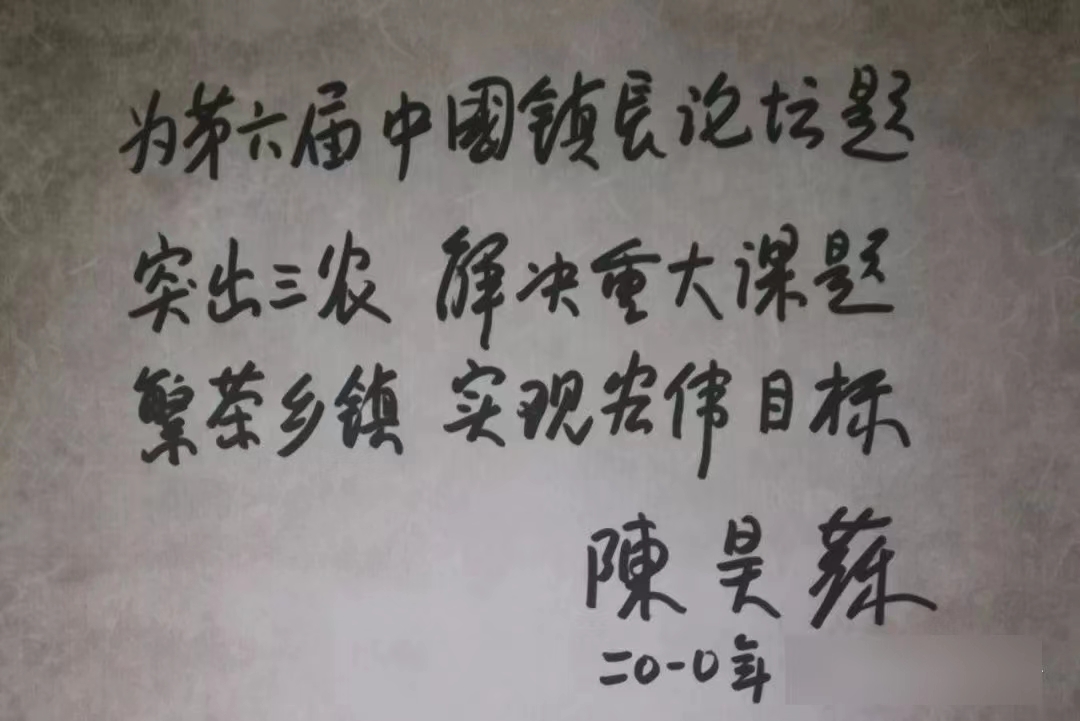 为第六届中國镇長论坛题
突出三农 解决重大课题
繁荣乡镇 实现宏伟目标
陳昊蘇
二〇一〇年